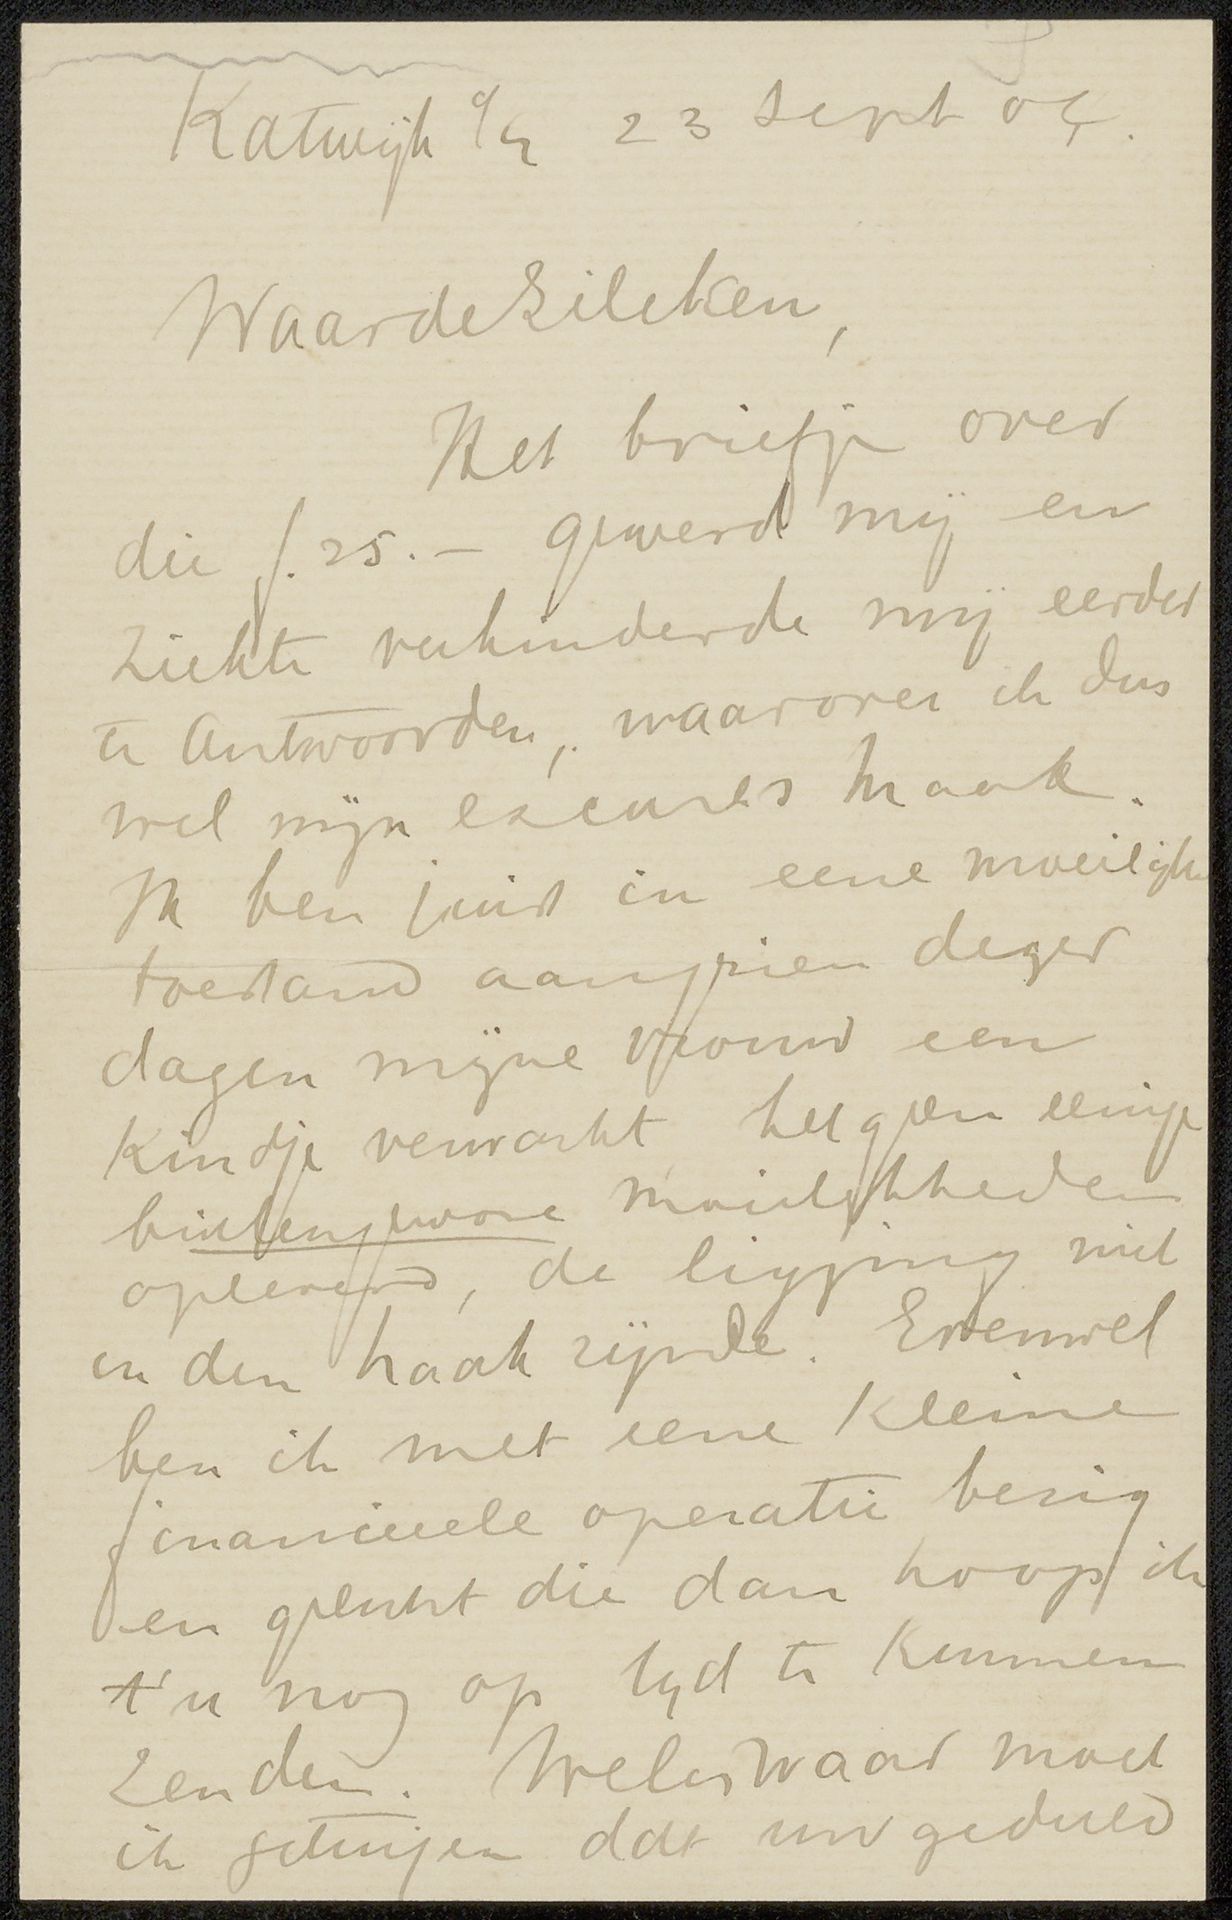 Katwijk a/z 23 Sept 04.
Waarde Zilcken,
Het briefje over
die f. 25.— gewerd mij en
ziekte verhinderde mij eerder
te antwoorden, waarover ik dus
wel mijn excuses maak.
Ik ben juist in eene moeilijke
toestand aangezien dezer
dagen mijne vrouw een
kindje verwacht, hetgeen eenige
buitengewone moeielijkheden
opleverd, de ligging niet
in den haak zijnde. Evenwel
ben ik met eene kleine
financieele operatie bezig
en gelukt die dan hoop ik
't u nog op tijd te kunnen
zenden. Weliswaar moet
ik getuigen dat uw geduld